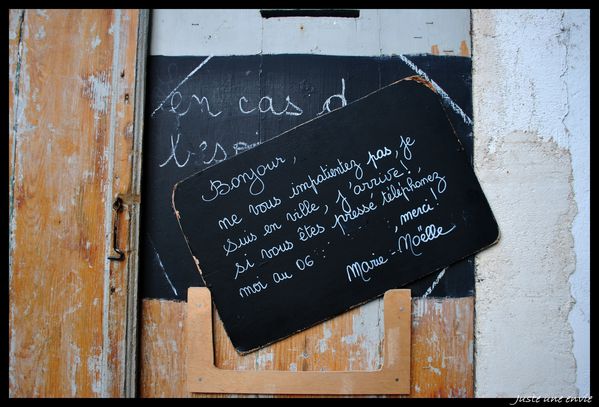 en cas d
Bonjour,
ne vous impatientez pas, je
suis en ville, j'arrive!
si vous êtes pressé téléphonez
moi au 06 : , merci!
Marie-Noëlle
Juste une envie